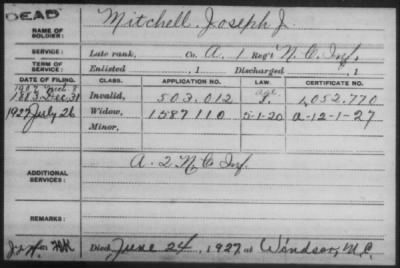 DEAD
NAME OF SOLDIER: Mitchell, Joseph J.
SERVICE: Late rank, Co. A, 1 Reg't N.C. Inf.
TERM OF SERVICE: Enlisted , 1 Discharged , 1
DATE OF FILING. CLASS. APPLICATION NO. LAW. CERTIFICATE NO.
1883 Dec. 31 Invalid, 503.012 Age 1,052.770
1927 July 26 Widow, 1587110 5-1-20 A-12-1-27
Minor,
ADDITIONAL SERVICES: A. 2 N.C. Inf.
REMARKS:
Died June 24, 1927 at Windsor, N.C.